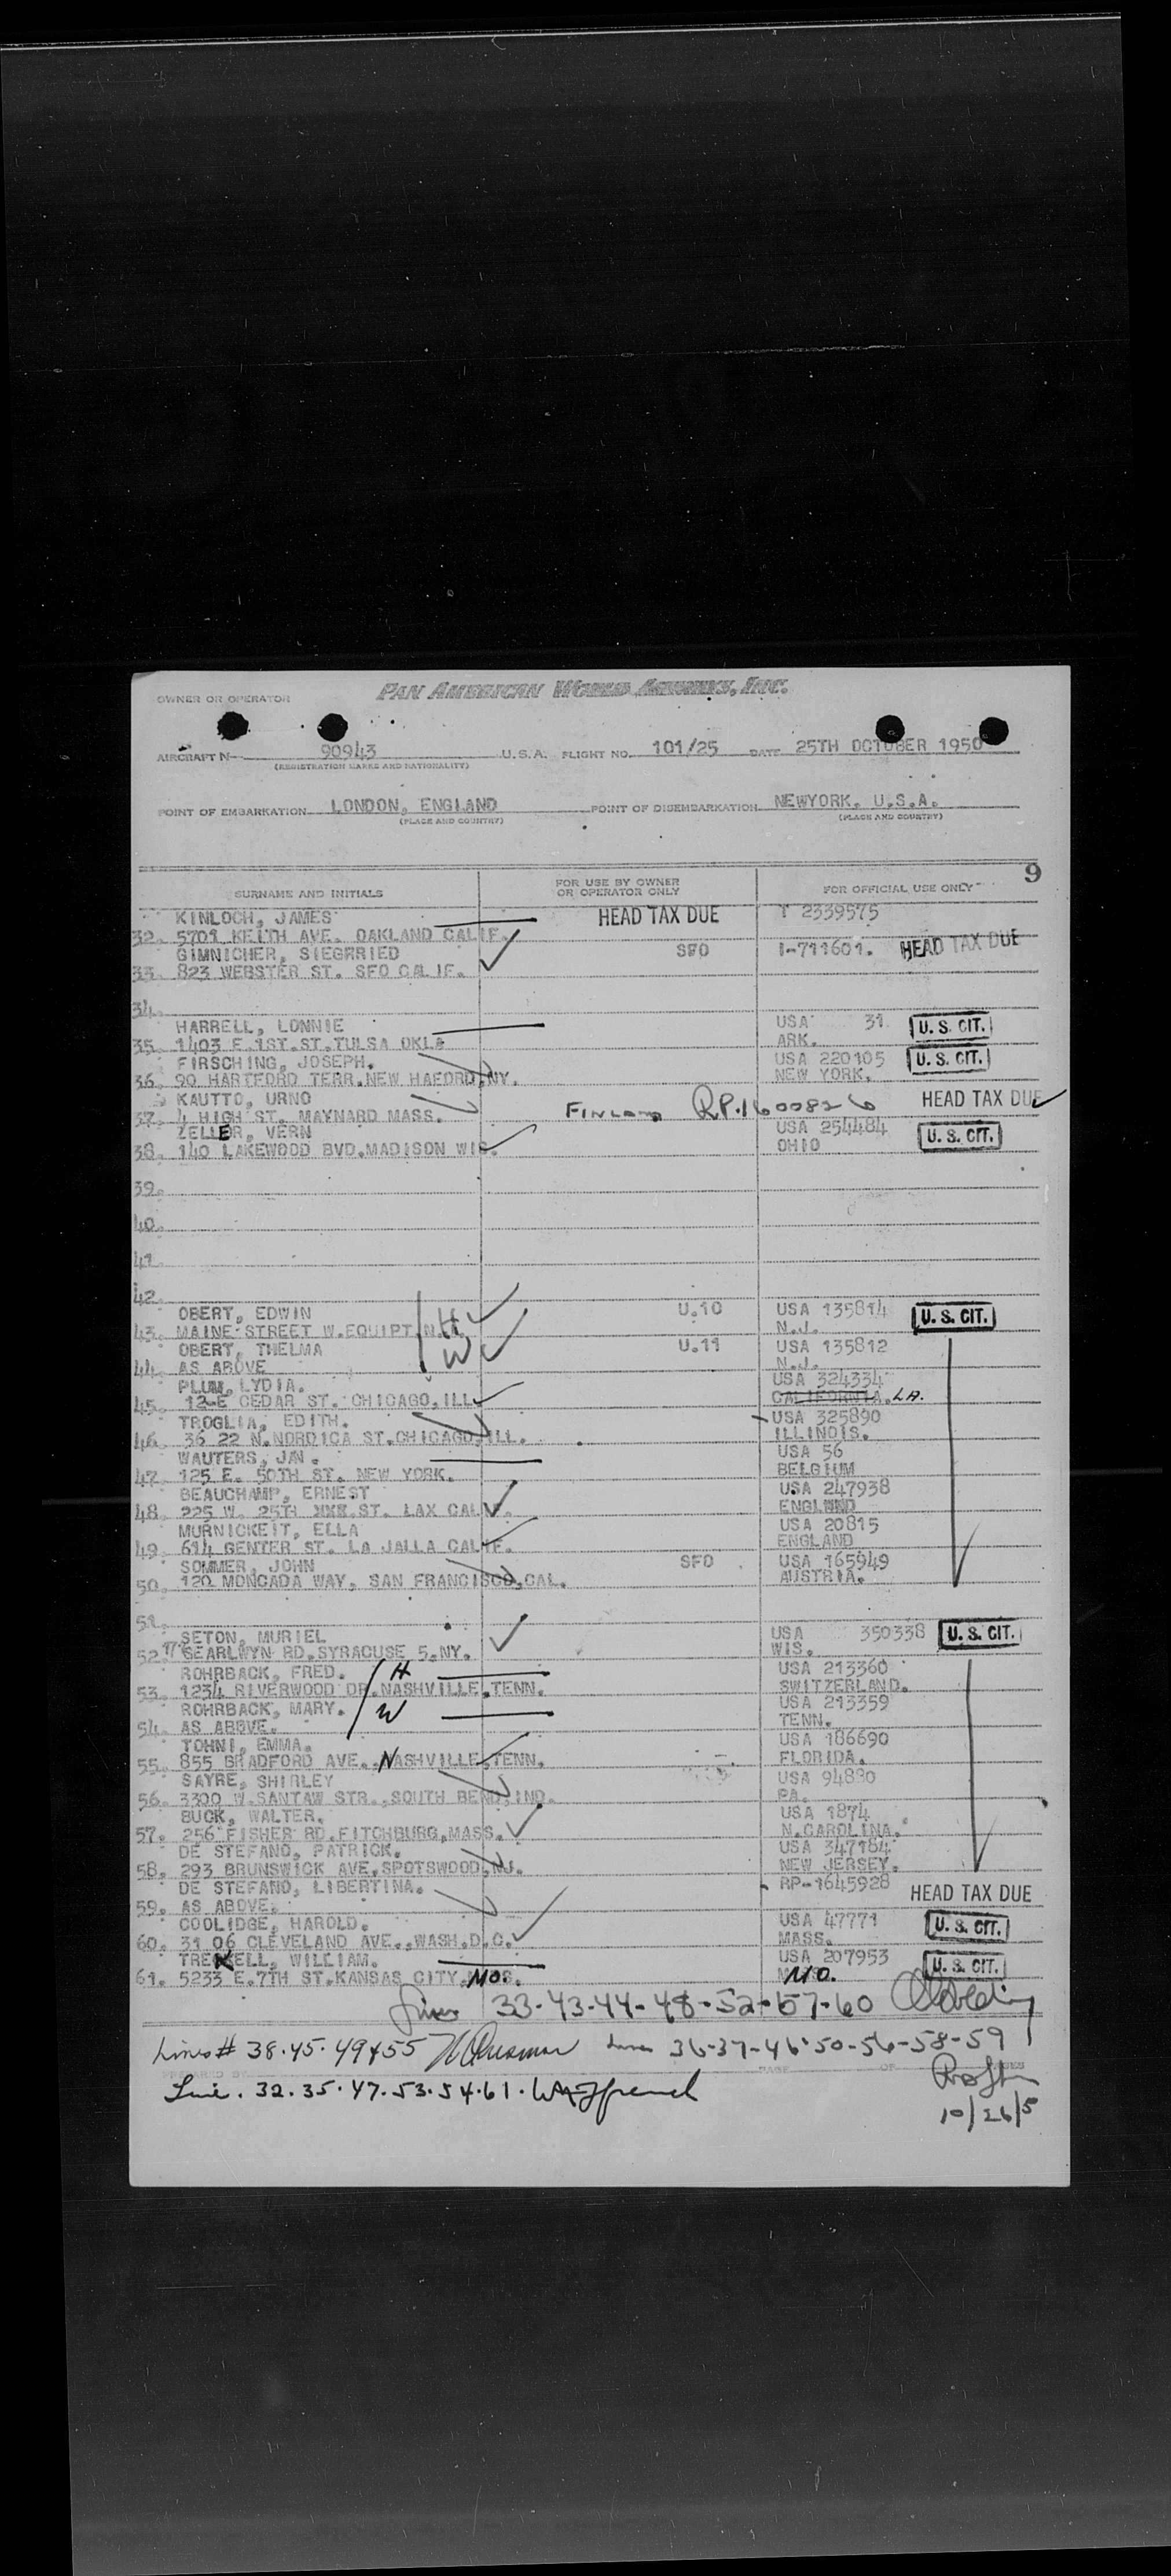 OWNER OR OPERATOR PAN AMERICAN WORLD AIRWAYS, INC.
AIRCRAFT N 90943 U.S.A. FLIGHT NO. 101/25 DATE 25TH OCTOBER 1950
(REGISTRATION MARKS AND NATIONALITY)
POINT OF EMBARKATION LONDON, ENGLAND POINT OF DISEMBARKATION NEWYORK. U.S.A.
(PLACE AND COUNTRY) (PLACE AND COUNTRY)
9
SURNAME AND INITIALS FOR USE BY OWNER OR OPERATOR ONLY FOR OFFICIAL USE ONLY
KINLOCH, JAMES HEAD TAX DUE T 2339575
32. 5701 KEITH AVE. OAKLAND CALIF.
GIMNICHER, SIEGFRIED SFO I-711601. HEAD TAX DUE
33. 823 WEBSTER ST. SFO CALIF.
34.
HARRELL, LONNIE USA 31 U. S. CIT.
35. 1403 E.1ST.ST.TULSA OKLA ARK.
FIRSCHING, JOSEPH. USA 220105 U. S. CIT.
36. 90 HARTFORD TERR.NEW HAFORD,NY. NEW YORK.
KAUTTO, URNO HEAD TAX DUE
37. 4 HIGH ST. MAYNARD MASS. FINLAND R.P.1600826
ZELLER, VERN USA 254484 U. S. CIT.
38. 140 LAKEWOOD BVD.MADISON WIS. OHIO
39.
40.
41.
42.
OBERT, EDWIN H U.10 USA 135814 U. S. CIT.
43. MAINE STREET W.EQUIPT N.J. N.J.
OBERT, THELMA W U.11 USA 135812
44. AS ABOVE N.J.
PLUM, LYDIA. USA 324334
45. 12-E CEDAR ST. CHICAGO,ILL CALIFORNIA. LA.
TROGLIA, EDITH. USA 325890
46. 36 22 N.NORDICA ST.CHICAGO,ILL. ILLINOIS.
WAUTERS, JAN. USA 56
47. 125 E. 50TH ST. NEW YORK. BELGIUM
BEAUCHAMP, ERNEST USA 247938
48. 225 W. 25TH XXX ST. LAX CALIF. ENGLAND
MURNICKEIT, ELLA USA 20815
49. 614 GENTER ST. LA JALLA CALIF. ENGLAND
SOMMER, JOHN SFO USA 165949
50. 120 MONCADA WAY, SAN FRANCISCO,CAL. AUSTRIA.
51.
SETON, MURIEL USA 350338 U. S. CIT.
52. SEARLWYN RD.SYRACUSE 5.NY. WIS.
ROHRBACK, FRED. H USA 213360
53. 1234 RIVERWOOD DR.NASHVILLE,TENN. SWITZERLAND.
ROHRBACK, MARY. W USA 213359
54. AS ABOVE. TENN.
TOHNI, EMMA. USA 186690
55. 855 BRADFORD AVE..NASHVILLE,TENN. FLORIDA.
SAYRE, SHIRLEY USA 94880
56. 3300 W.SANTAW STR.,SOUTH BEND,IND. PA.
BUCK, WALTER. USA 1874
57. 256 FISHER RD.FITCHBURG,MASS. N.CAROLINA.
DE STEFANO, PATRICK. USA 347184
58. 293 BRUNSWICK AVE.SPOTSWOOD,NJ. NEW JERSEY.
DE STEFANO, LIBERTINA. RP-1645928 HEAD TAX DUE
59. AS ABOVE.
COOLIDGE, HAROLD. USA 47771 U. S. CIT.
60. 31 06 CLEVELAND AVE..WASH.D.C. MASS.
TREKELL, WILLIAM. USA 207953 U. S. CIT.
61. 5233 E.7TH ST.KANSAS CITY. MO. MO.
Lines 33-43-44-48-52-57-60
Lines # 38-45-49+55 Lines 36-37-46-50-56-58-59
PREPARED BY PAGE OF
Line. 32.35.47.53.54.61.
10/26/5